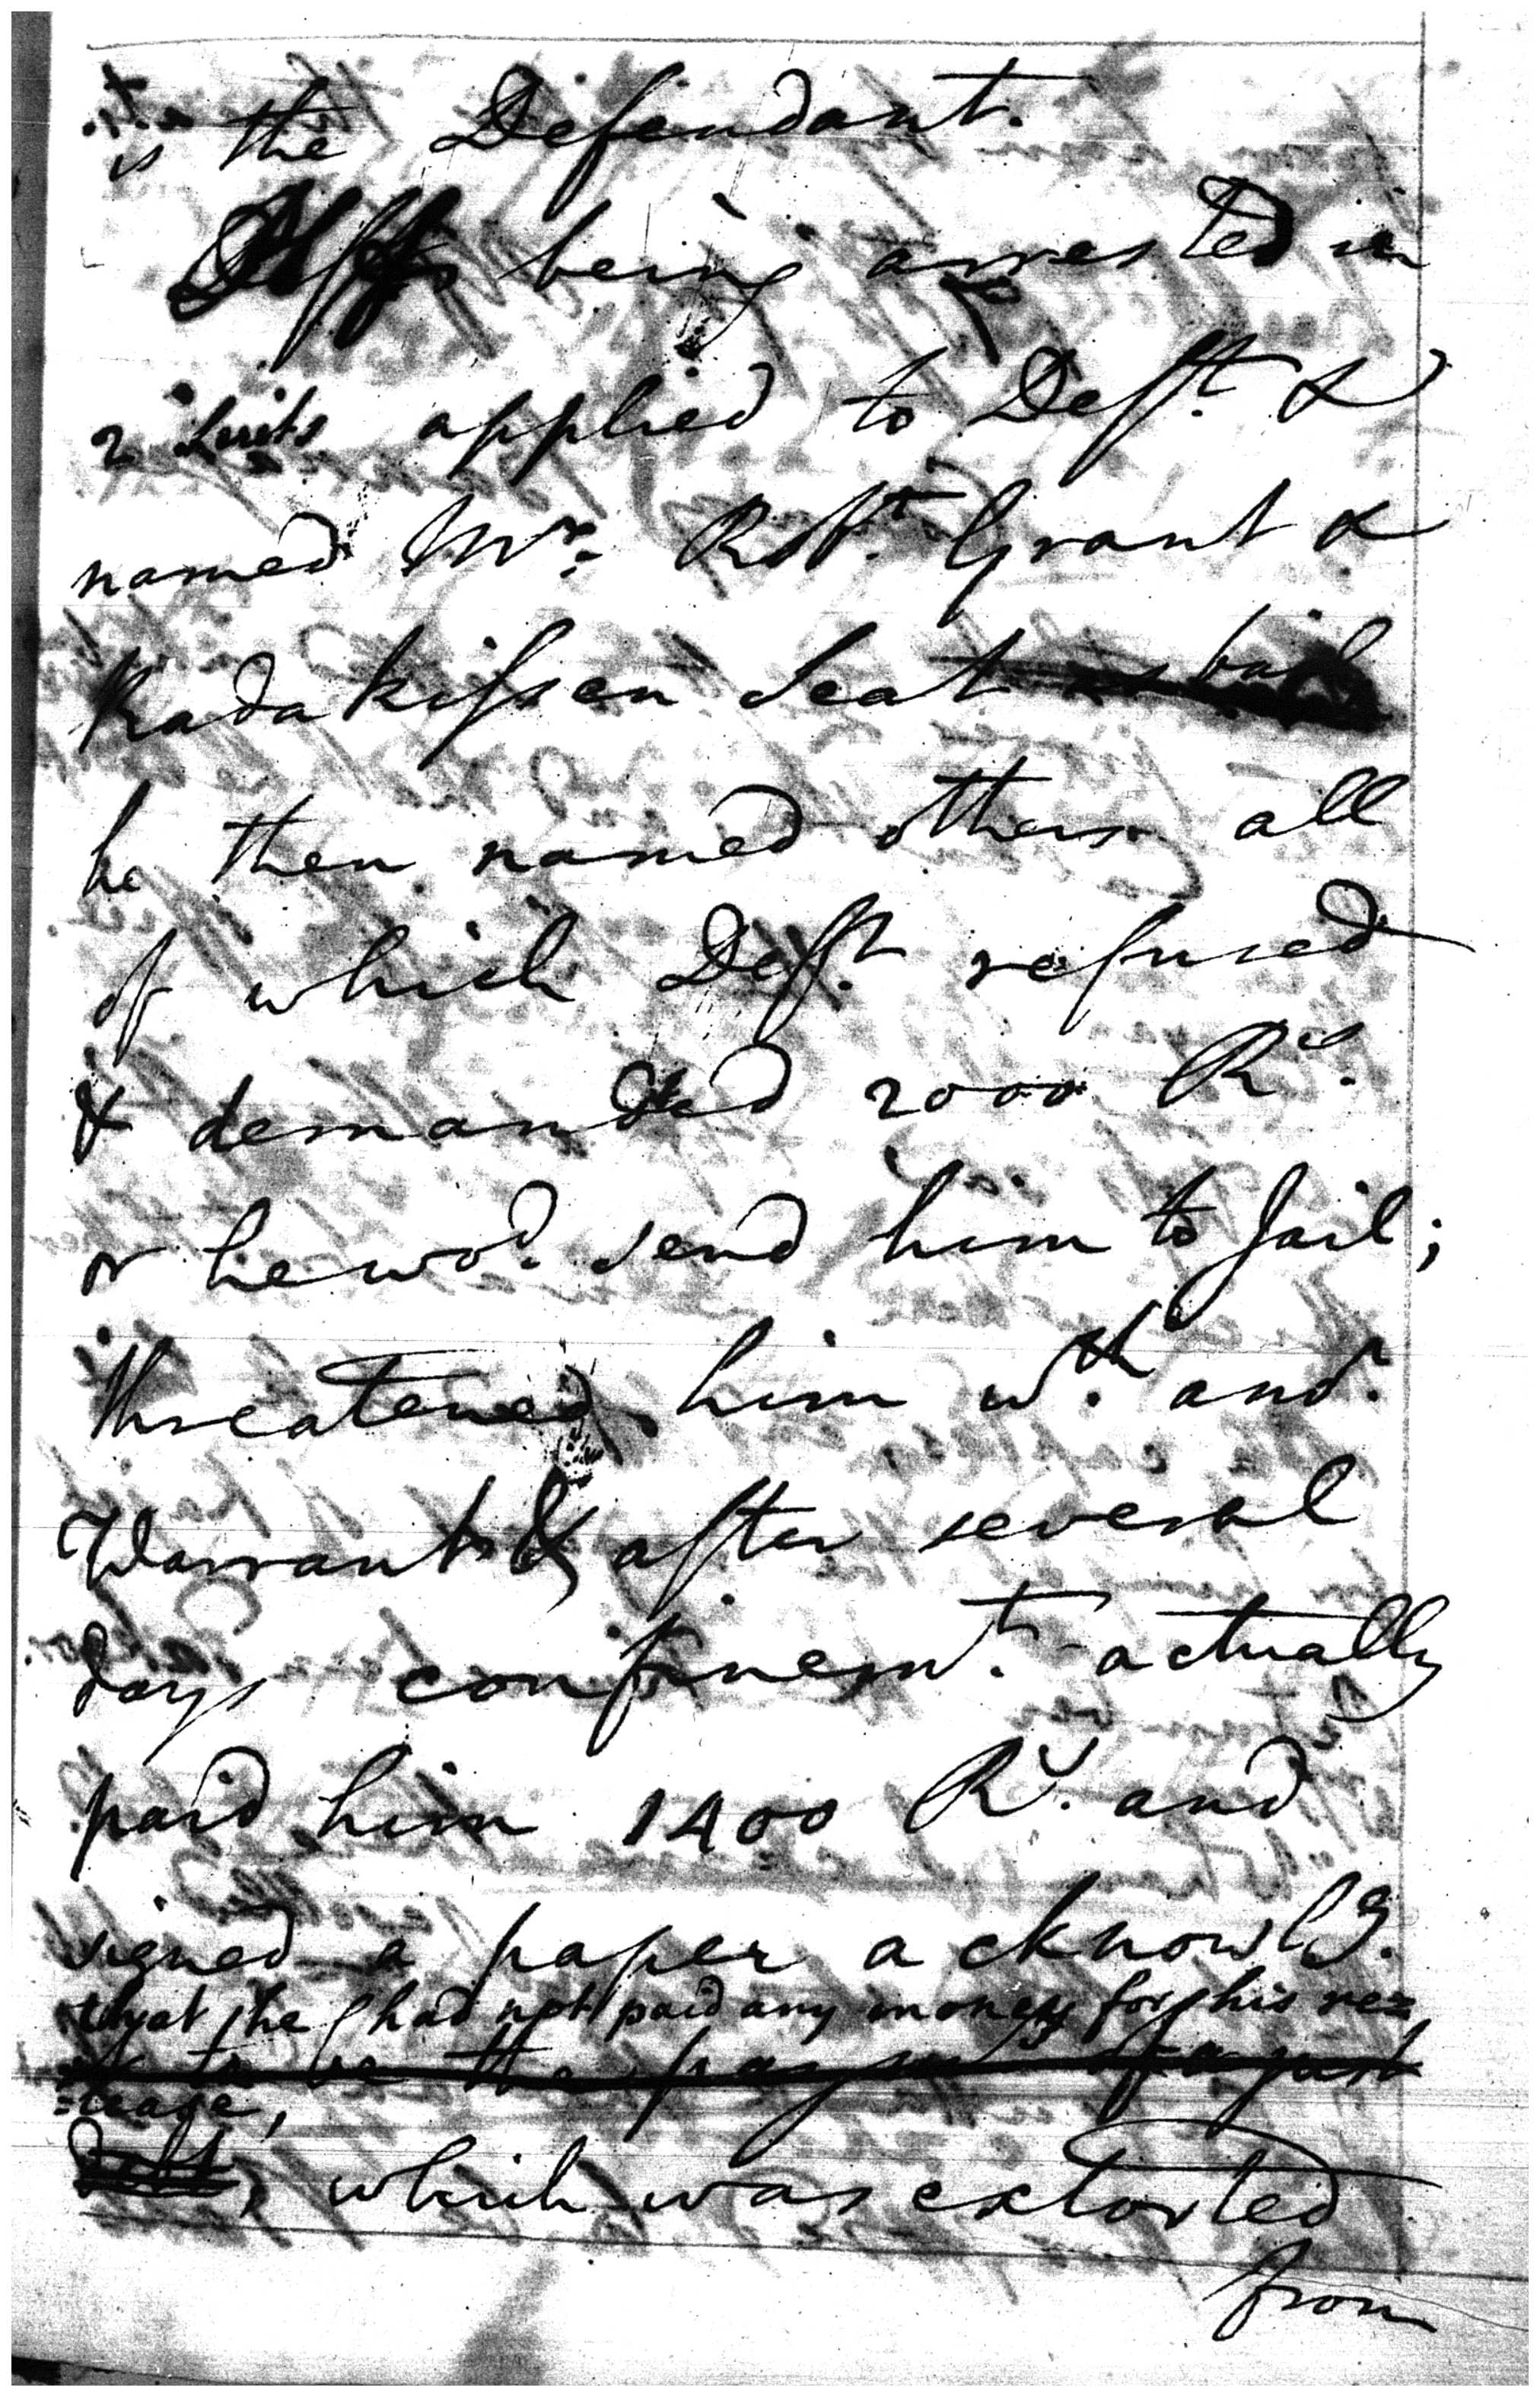 is the Defendant.
being arrested in
2 Suits applied to Deft. &
named Mr. Robt. Grant &
Radakissen Seat as bail
he then named others all
of which Deft. refused
& demanded 2000 Rs.
or he wod. send him to Jail;
threatened him wth. anor.
Warrant & after several
days confinemt. actually
paid him 1400 Rs. and
signed a paper acknowlg.
that he had not paid any money for his re=
to be the paymt. of a just
=lease,
debt, which was extorted
from